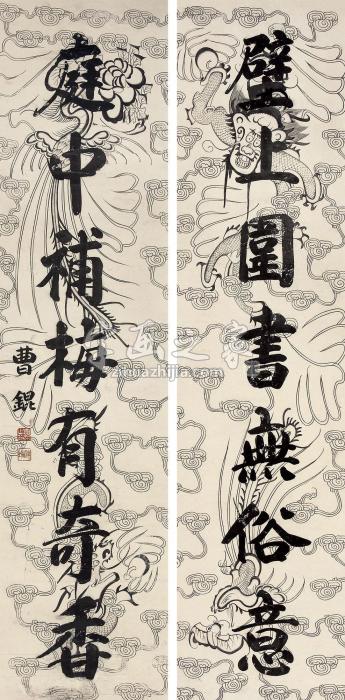 壁上圖書無俗意
庭中補梅有奇香
曹錕
字画之家
zihuazhijia.com